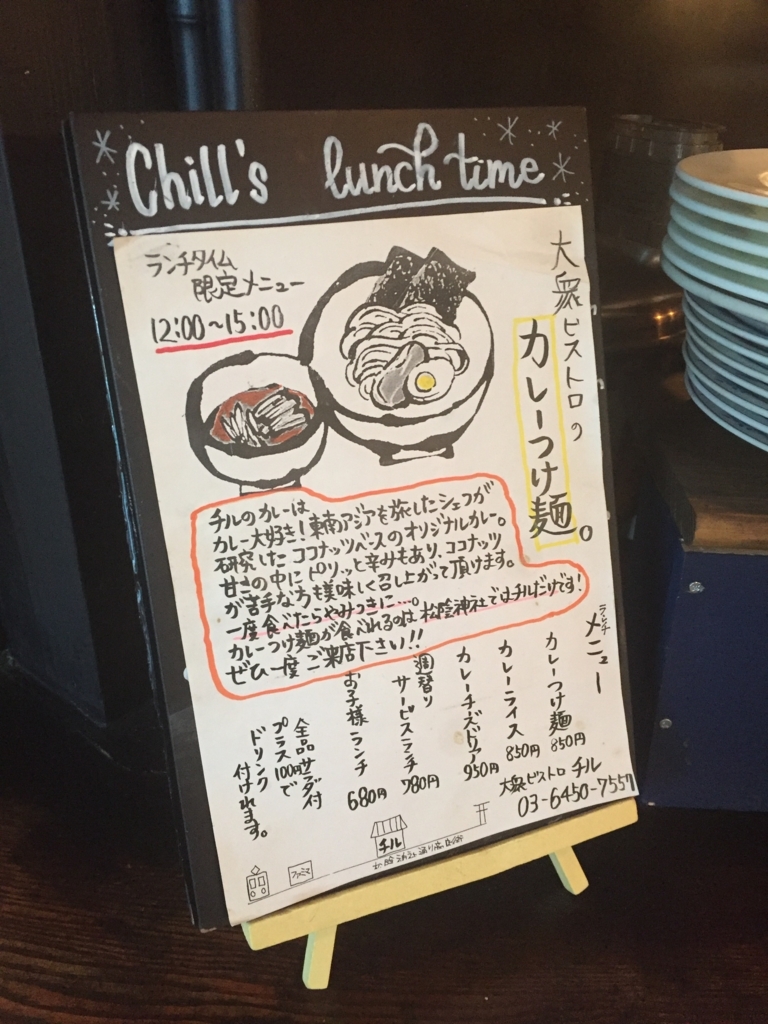 Chill's lunch time
ランチタイム
限定メニュー
12:00〜15:00
大衆ビストロの
カレーつけ麺。
チルのカレーは
カレー大好き!東南アジアを旅したシェフが
研究したココナッツベースのオリジナルカレー。
甘さの中にピリッと辛みもあり、ココナッツ
が苦手な方も美味しく召し上がって頂けます。
一度食べたらやみつきに…。
カレーつけ麺が食べれるのは松陰神社ではチルだけです!
ぜひ一度ご来店下さい!!
ランチ
メニュー
カレーつけ麺 850円
カレーライス 850円
カレーチーズドリア 950円
週替り
サービスランチ 780円
お子様ランチ 680円
全品サラダ付
プラス100円で
ドリンク
付けれます。
大衆ビストロ チル
03-6450-7557
チル
ファミマ